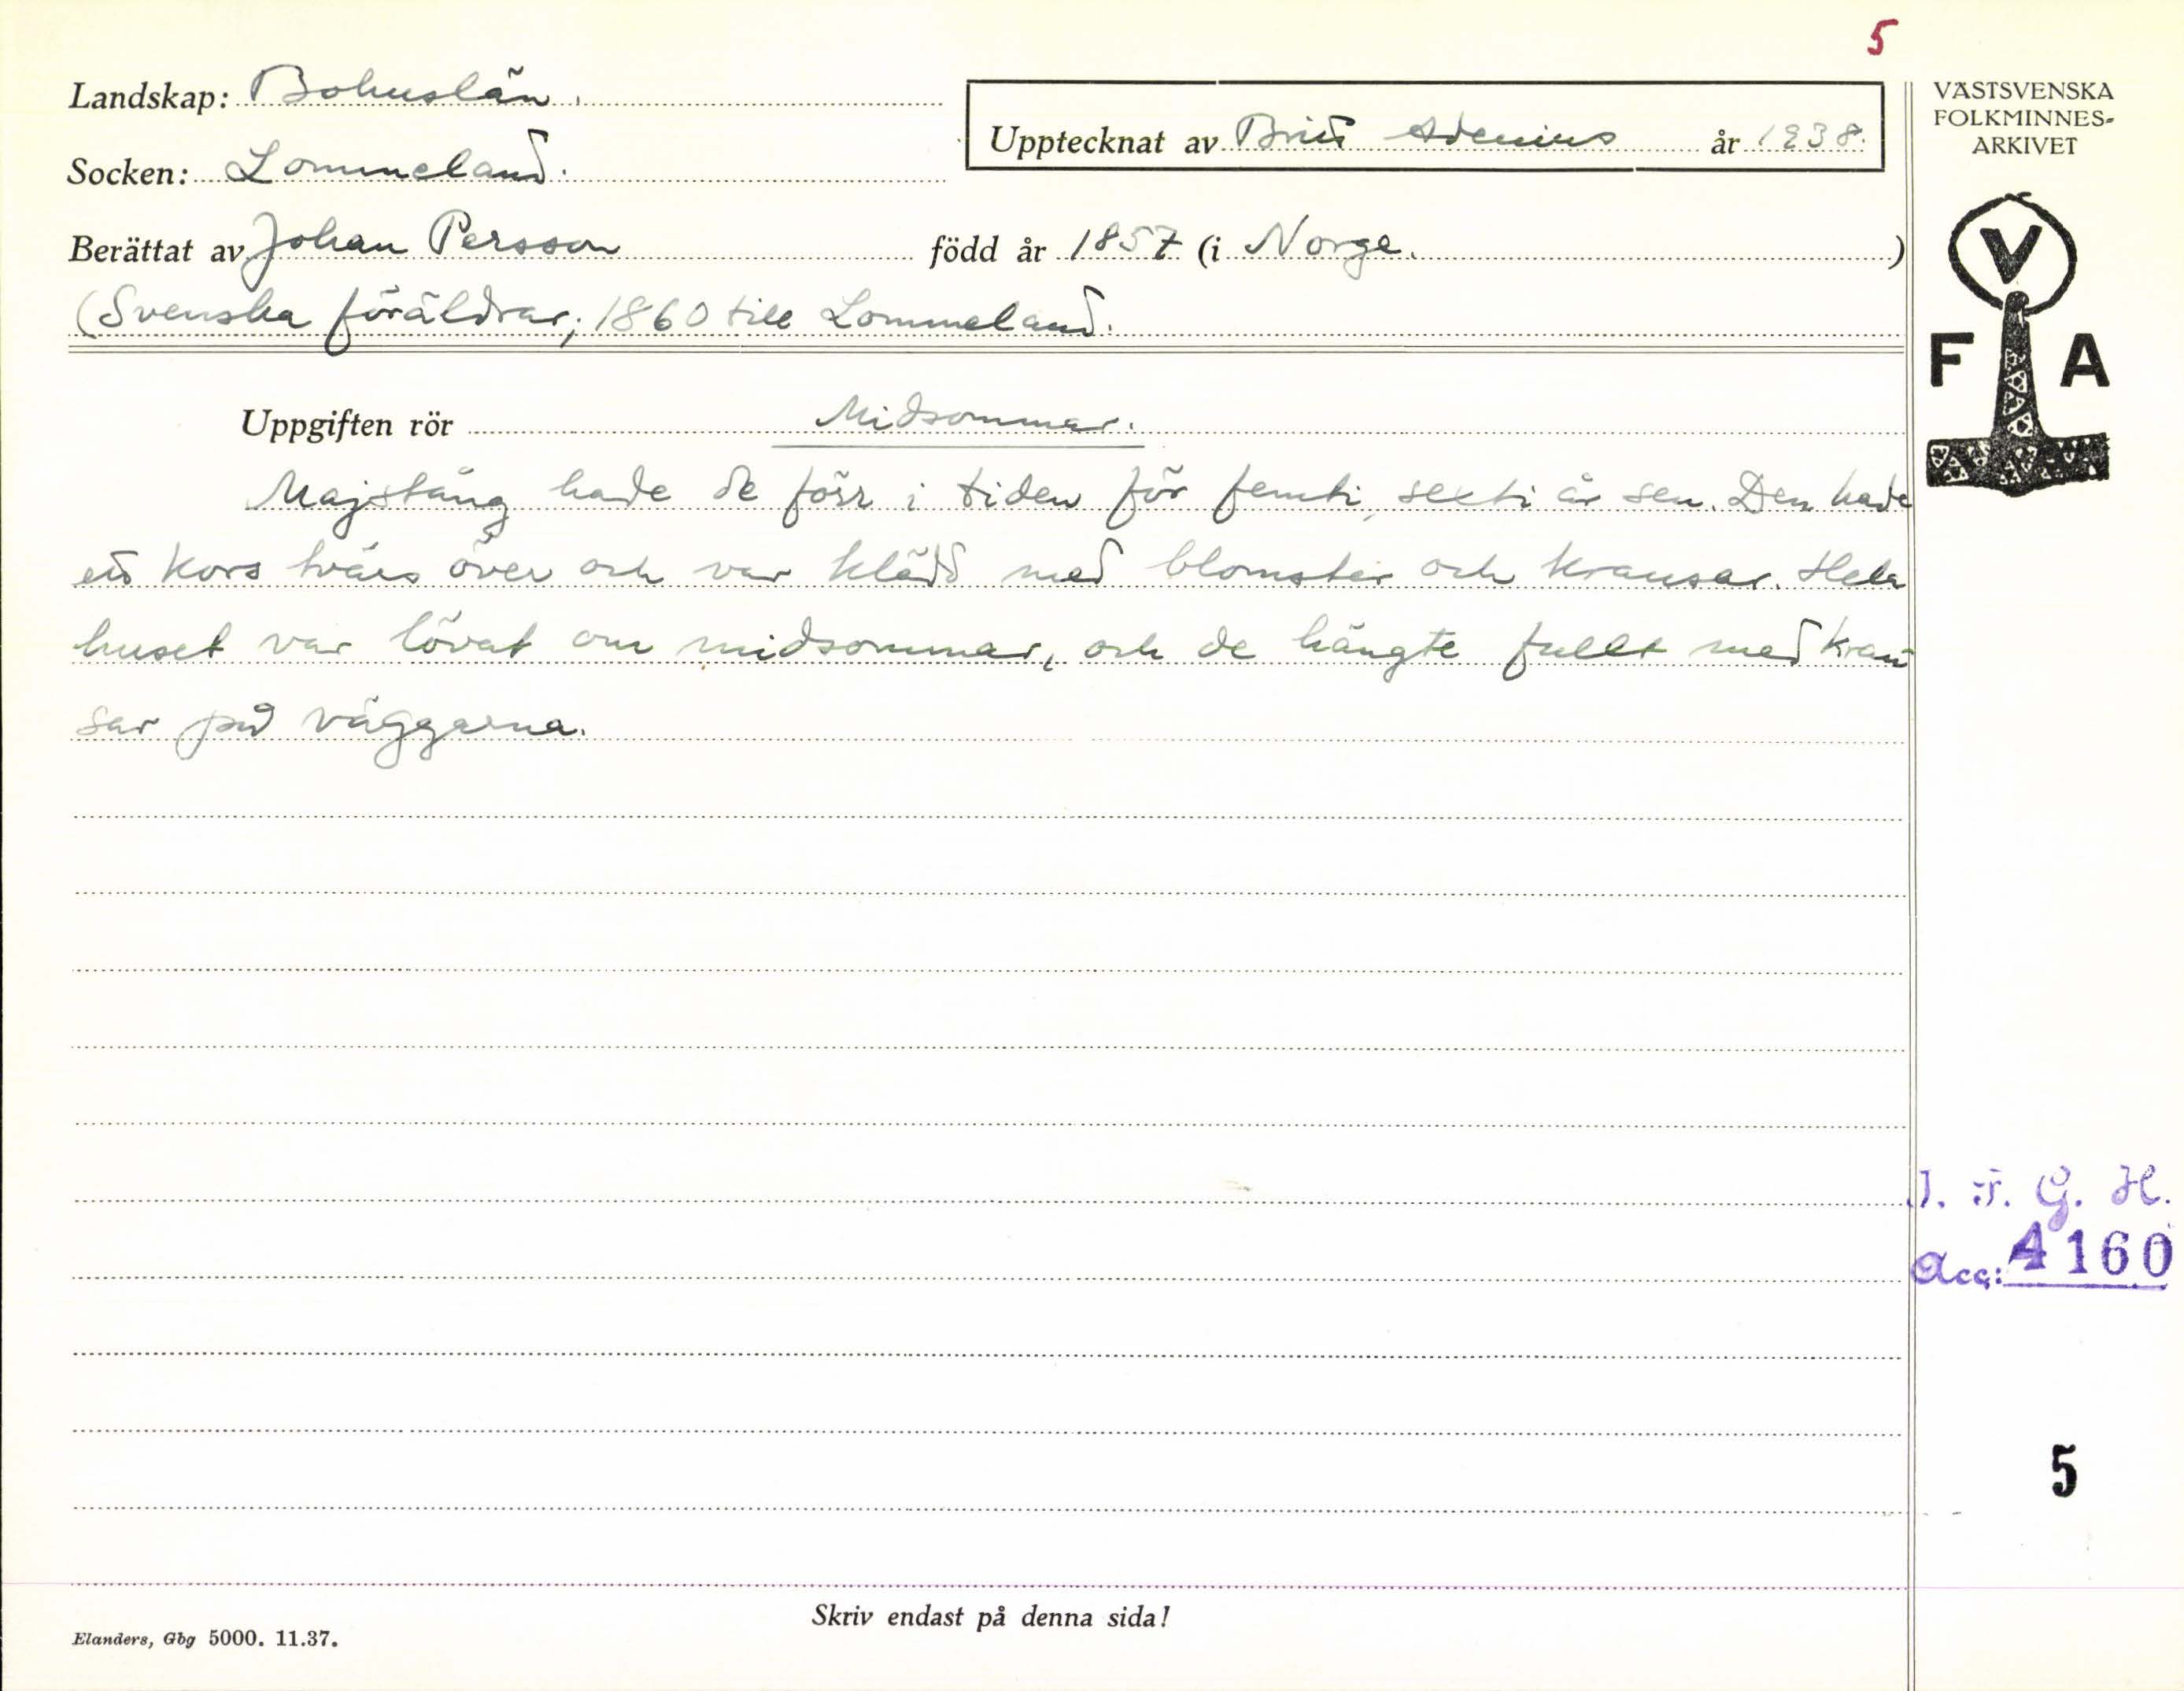 5
Landskap: Bohuslän.
Upptecknat av Britt Adenius år 1938.
Socken: Lommeland.
Berättat av Johan Persson född år 1857 (i Norge.)
(Svenska föräldrar; 1860 till Lommeland.
VÄSTSVENSKA
FOLKMINNES-
ARKIVET
V
F A
Uppgiften rör Midsommar.
Majstång hade de förr i tiden för femti, sexti år sen. Den hade
ett kors tvärs över och var klädd med blomster och kransar. Hela
huset var lövat om midsommar, och de hängte fullt med kran-
sar på väggarna.
I. F. G. H.
Acc: 4160
5
Skriv endast på denna sida!
Elanders, Gbg 5000. 11.37.